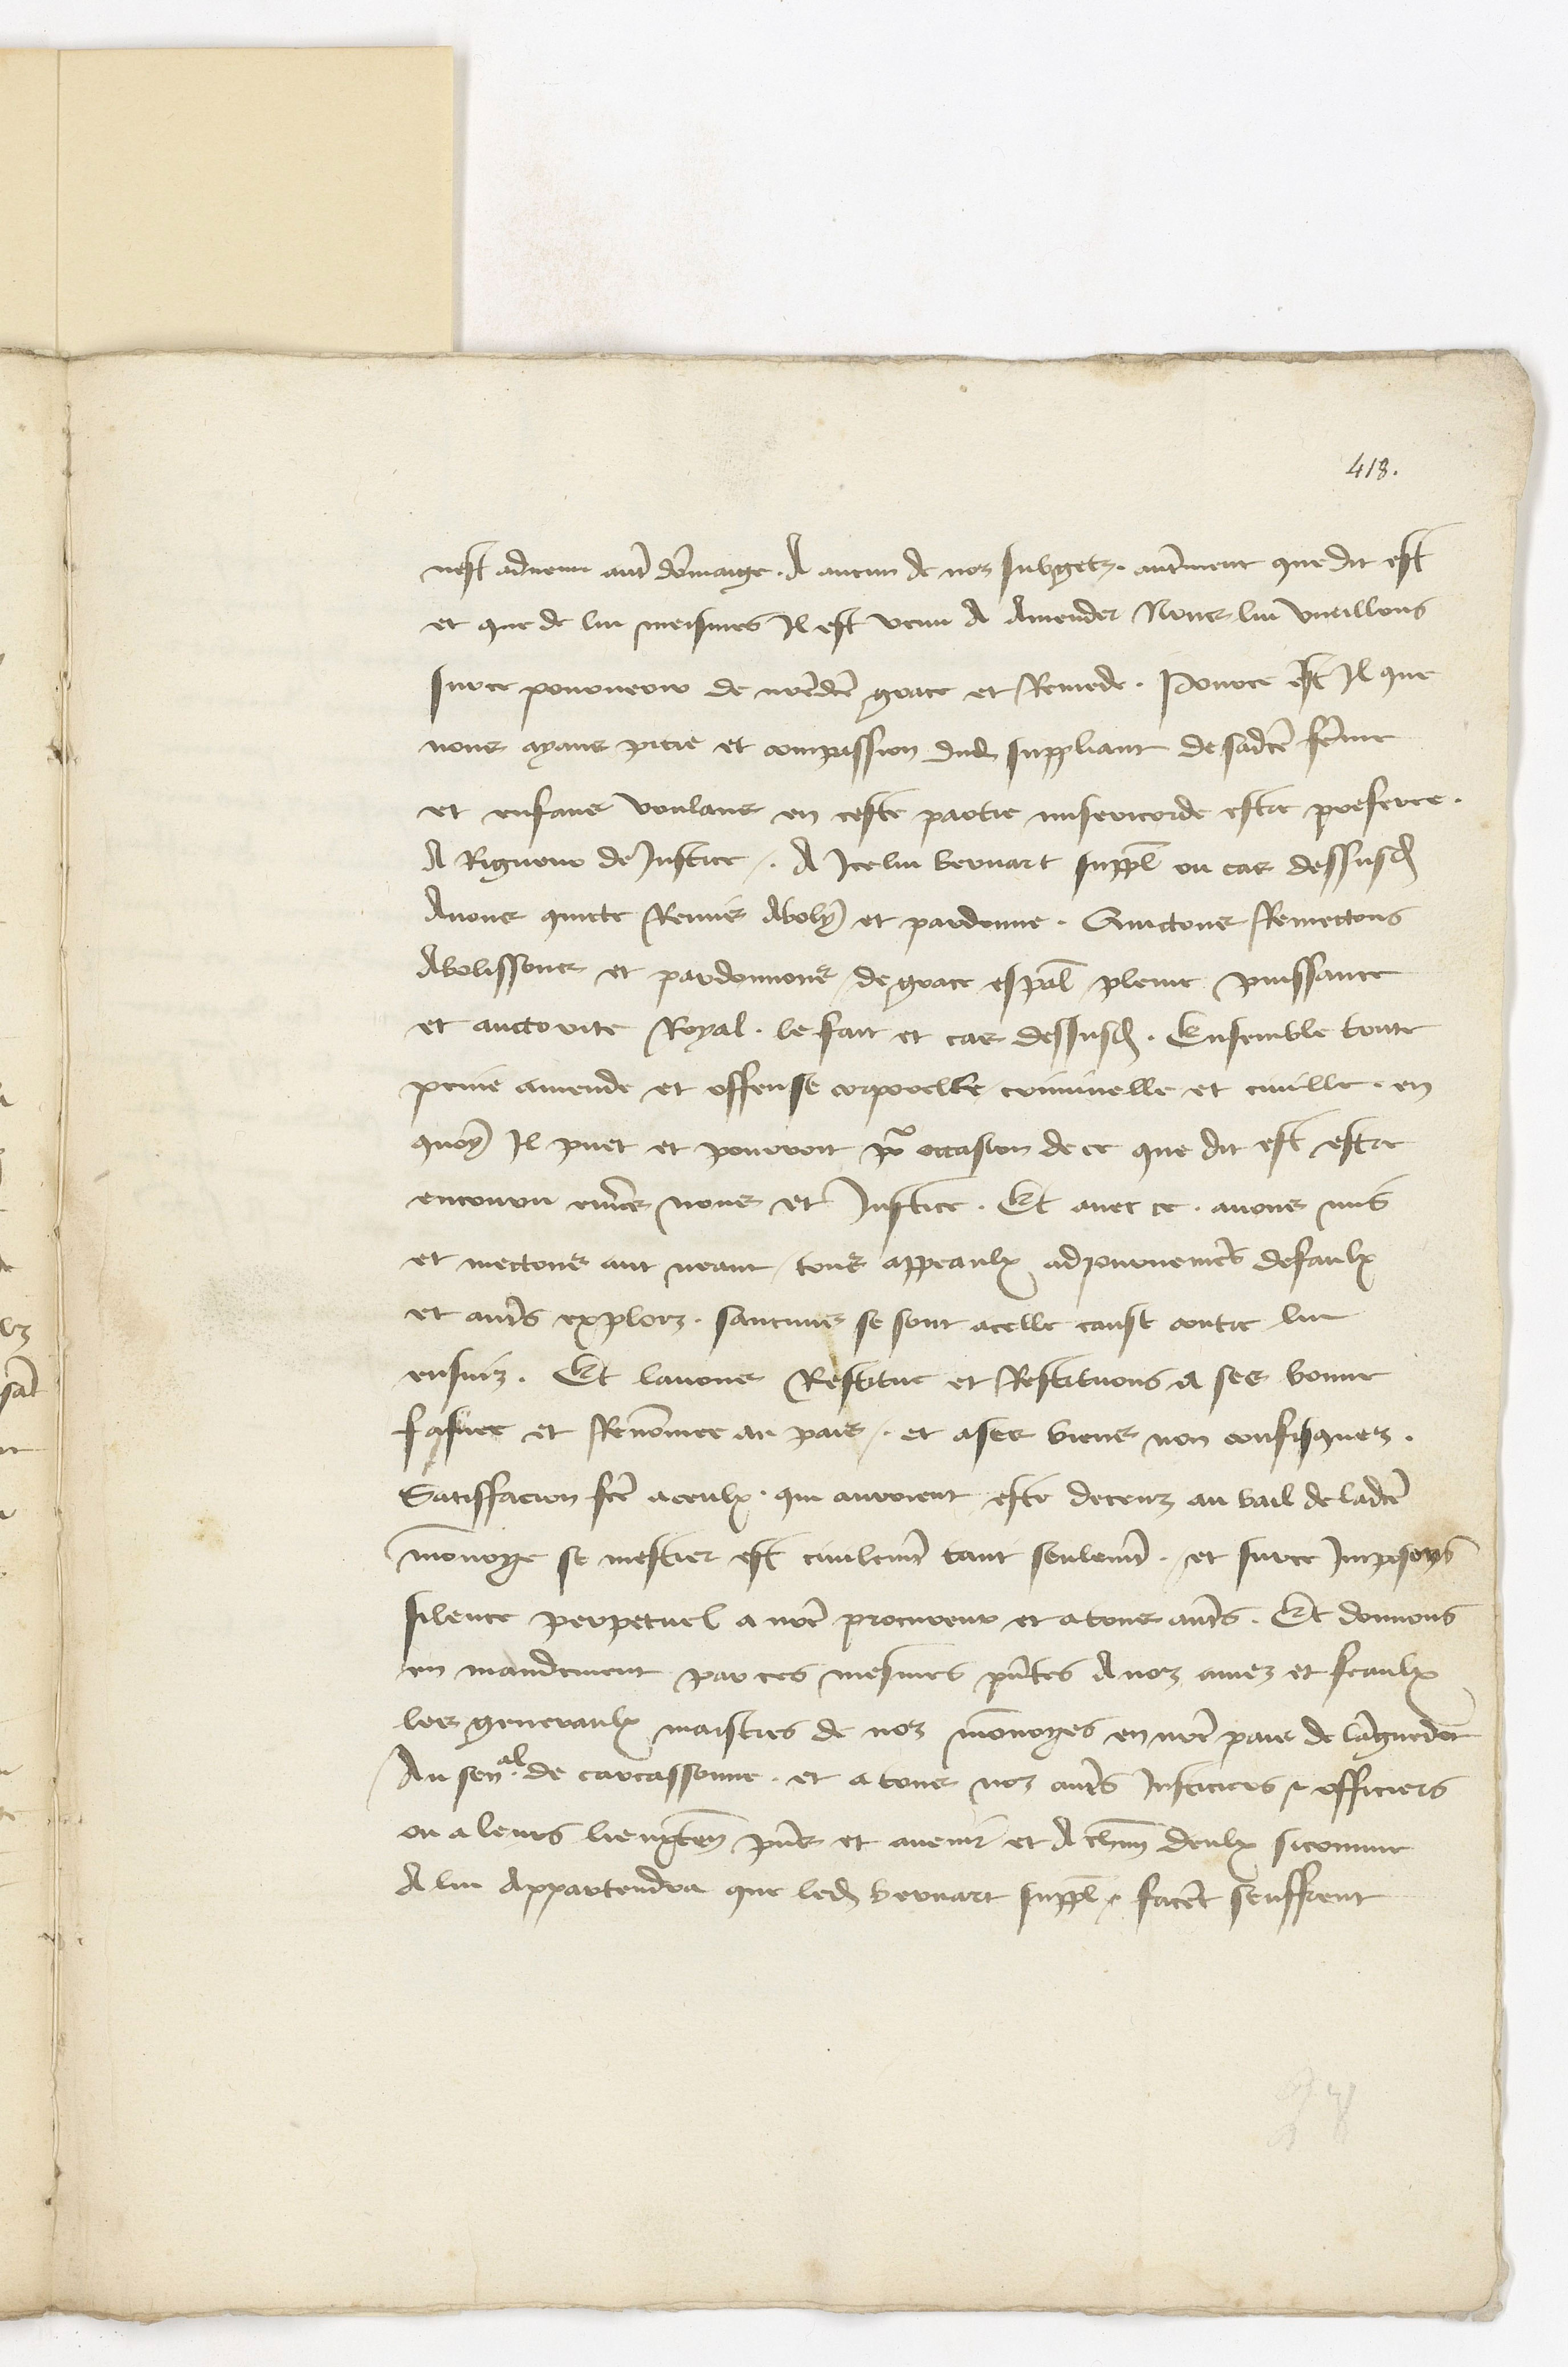 418.
nest advenu autre dommaige. A aucun de nos subgetz. autrement que dit est
et que de lui meismes Il est venu A Amender Nous lui vueillons
surce pourveoir de nredcte grace et Remede. Pource est Il que
nous ayans pitie et compassion dud suppliant de sadcte feme
et enfans voulans en ceste partie misericorde estre preferee.
A Rigueur de Justice. A Icelui bernart suppl ou cas dessusd
Avons quicte Remis Aboly et pardonne. Quictons Remectons
Abolissons et pardonnons de grace espal plenie puissance
et auctorite Royal. le fait et cas dessusd. Ensemble toute
peine amende et offense corporelle criminelle et civille. en
quoy Il puet et pourroit pr occasion de ce que dit est estre
encouru envers nous et Justice. Et avec ce. avons mis
et mectons aut neant tous appeaulx adjournemens defaulx
et autres explois. saucuns se sont acelle cause contre lui
ensuiz. Et lavons Restitue et Restituons a ses bonne
fasme et Renommee au pais. et a ses biens non confisquez.
Satisfacion fcte aceulx. qui auroient este deceuz au bail de ladcte
monoye se mestier est civilemt tant seulemt. et surce Imposons
silence perpetuel a nre procureur et a tous autres. Et donnons
en mandement par ces mesmes pntes A noz amez et feaulx
les generaulx maistres de noz monoyes en nre pais de languedoc
Au senal de carcassonne. et a tous noz autres Justiciers & officiers
ou a leurs lieuxten pns et avenir et A chun deulx sicomme
A lui Appartendra que led bernart suppl. facent seuffrent